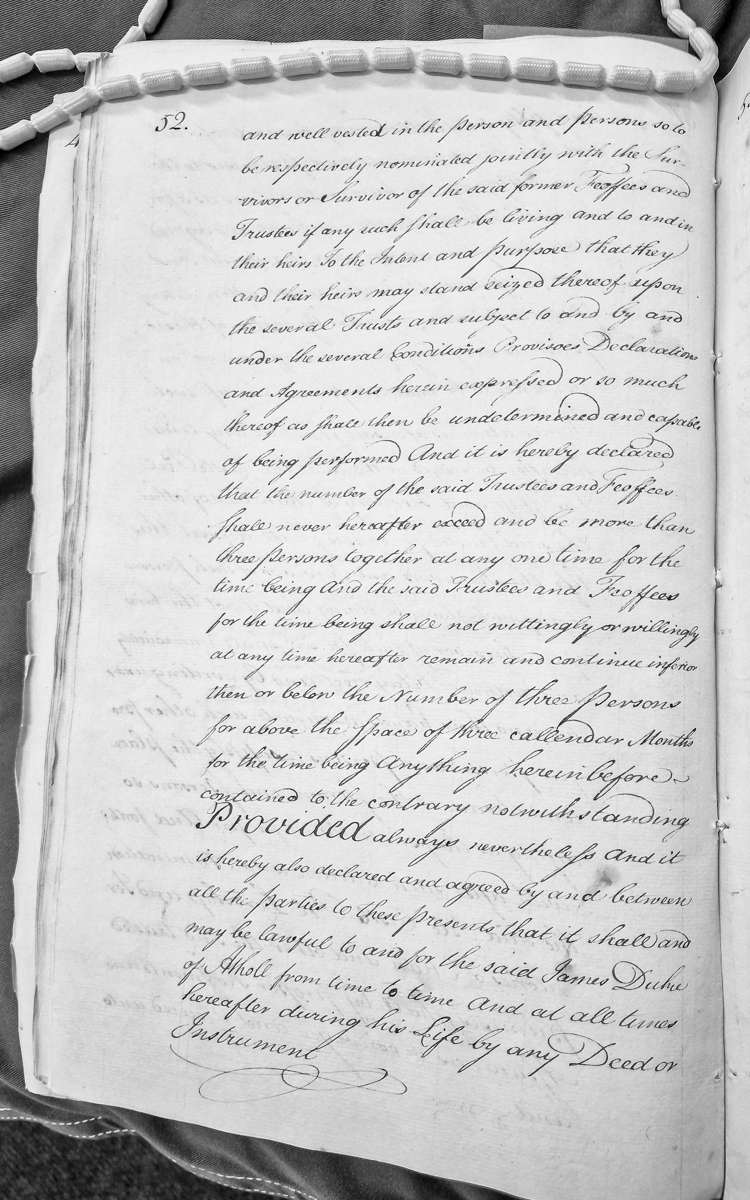 52.
and well vested in the person and persons so to
be respectively nominated jointly with the Sur-
vivors or Survivor of the said former Feoffees and
Trustees if any such shall be living and to and in
their heirs To the Intent and purpose that they
and their heirs may stand seized thereof upon
the several Trusts and subject to and by and
under the several Conditions Provisoes Declarations
and Agreements herein expressed or so much
thereof as shall then be undetermined and capable
of being performed And it is hereby declared
that the number of the said Trustees and Feoffees
shall never hereafter exceed and be more than
three persons together at any one time for the
time being And the said Trustees and Feoffees
for the time being shall not wittingly or willingly
at any time hereafter remain and continue inferior
then or below the Number of three persons
for above the space of three callendar Months
for the time being Anything hereinbefore
contained to the contrary notwithstanding
Provided always nevertheless and it
is hereby also declared and agreed by and between
all the parties to these presents that it shall and
may be lawful to and for the said James Duke
of Atholl from time to time And at all times
hereafter during his Life by any Deed or
Instrument